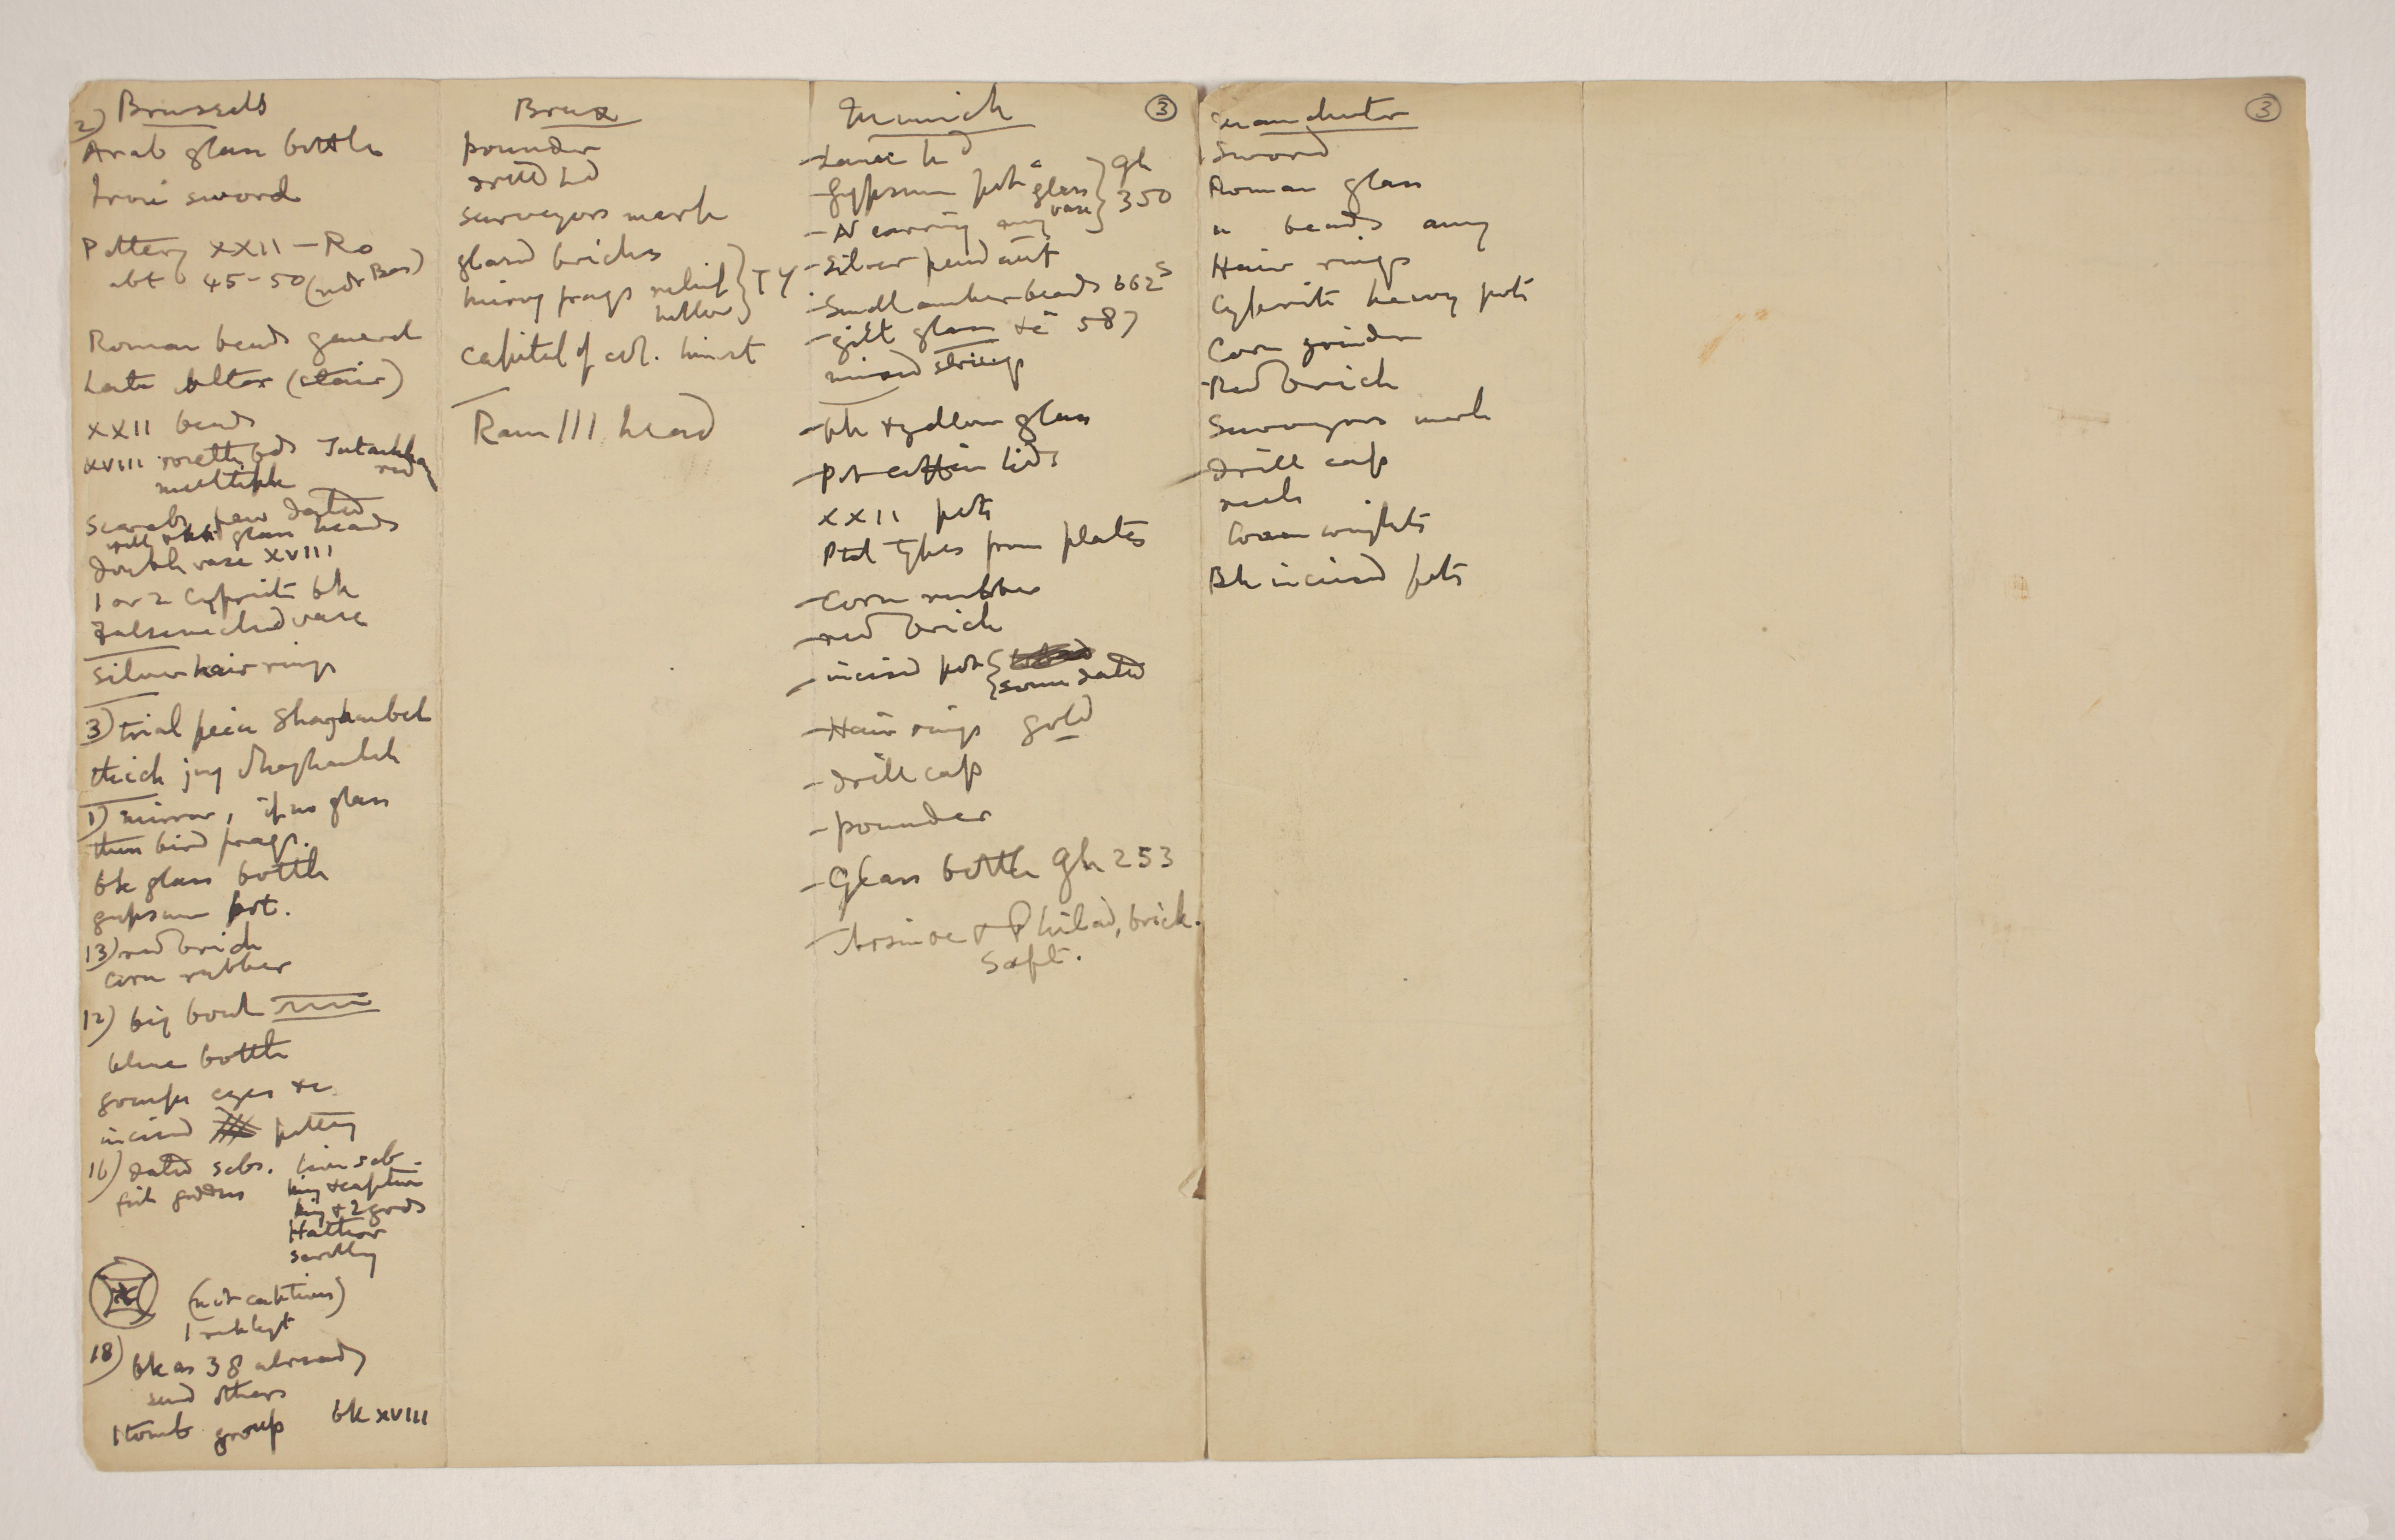 2) Brussels
Arab glass bottle
Iron sword
Pottery XXII – Ro
abt 45–50 (not Bas)
Roman beads general
Late altar (stair)
XXII beads
XVIII rosette bds
multiple red
Scarabs few dated
glass beads
double vase XVIII
1 or 2 Cypriote bk
False necked vase
Silver hair rings
3) trial piece Shaghanbeh
thick jug Shaghanbeh
1) mirror, if no glass
then bird frags.
bk glass bottle
gypsum pot.
13) red brick
corn rubber
12) big bowl
blue bottle
groups eyes &c
incised pottery
16) dated scbs.
king & captive
king & 2 gods
Hathor
(not captives)
18) bk as 38 already
send others
1 tomb group bk XVIII
Brux
pounder
surveyors mark
glazed bricks
frags relief } TY
capital of col.
Ram III head
Munich
3
– Lance hd
– Gypsum pot & glass vase } gh 350
– earring
– Silver pendant
– Small amber beads 662
– gilt glass &c 587
mixed strings
– bk & yellow glass
– Pot coffin lids
XXII pots
Ptd types from plates
– corn rubber
– red brick
– incised pot { some dated
– Hair rings gold
– drill cap
– pounder
– Glass bottle gh 253
– Arsinoe & Philad, brick.
Saft.
Manchester
Sword
Roman glass
" beads
Hair rings
Cypriote heavy pots
Corn grinder
Red brick
Surveyors mark
– drill cap
Bk incised pots
3